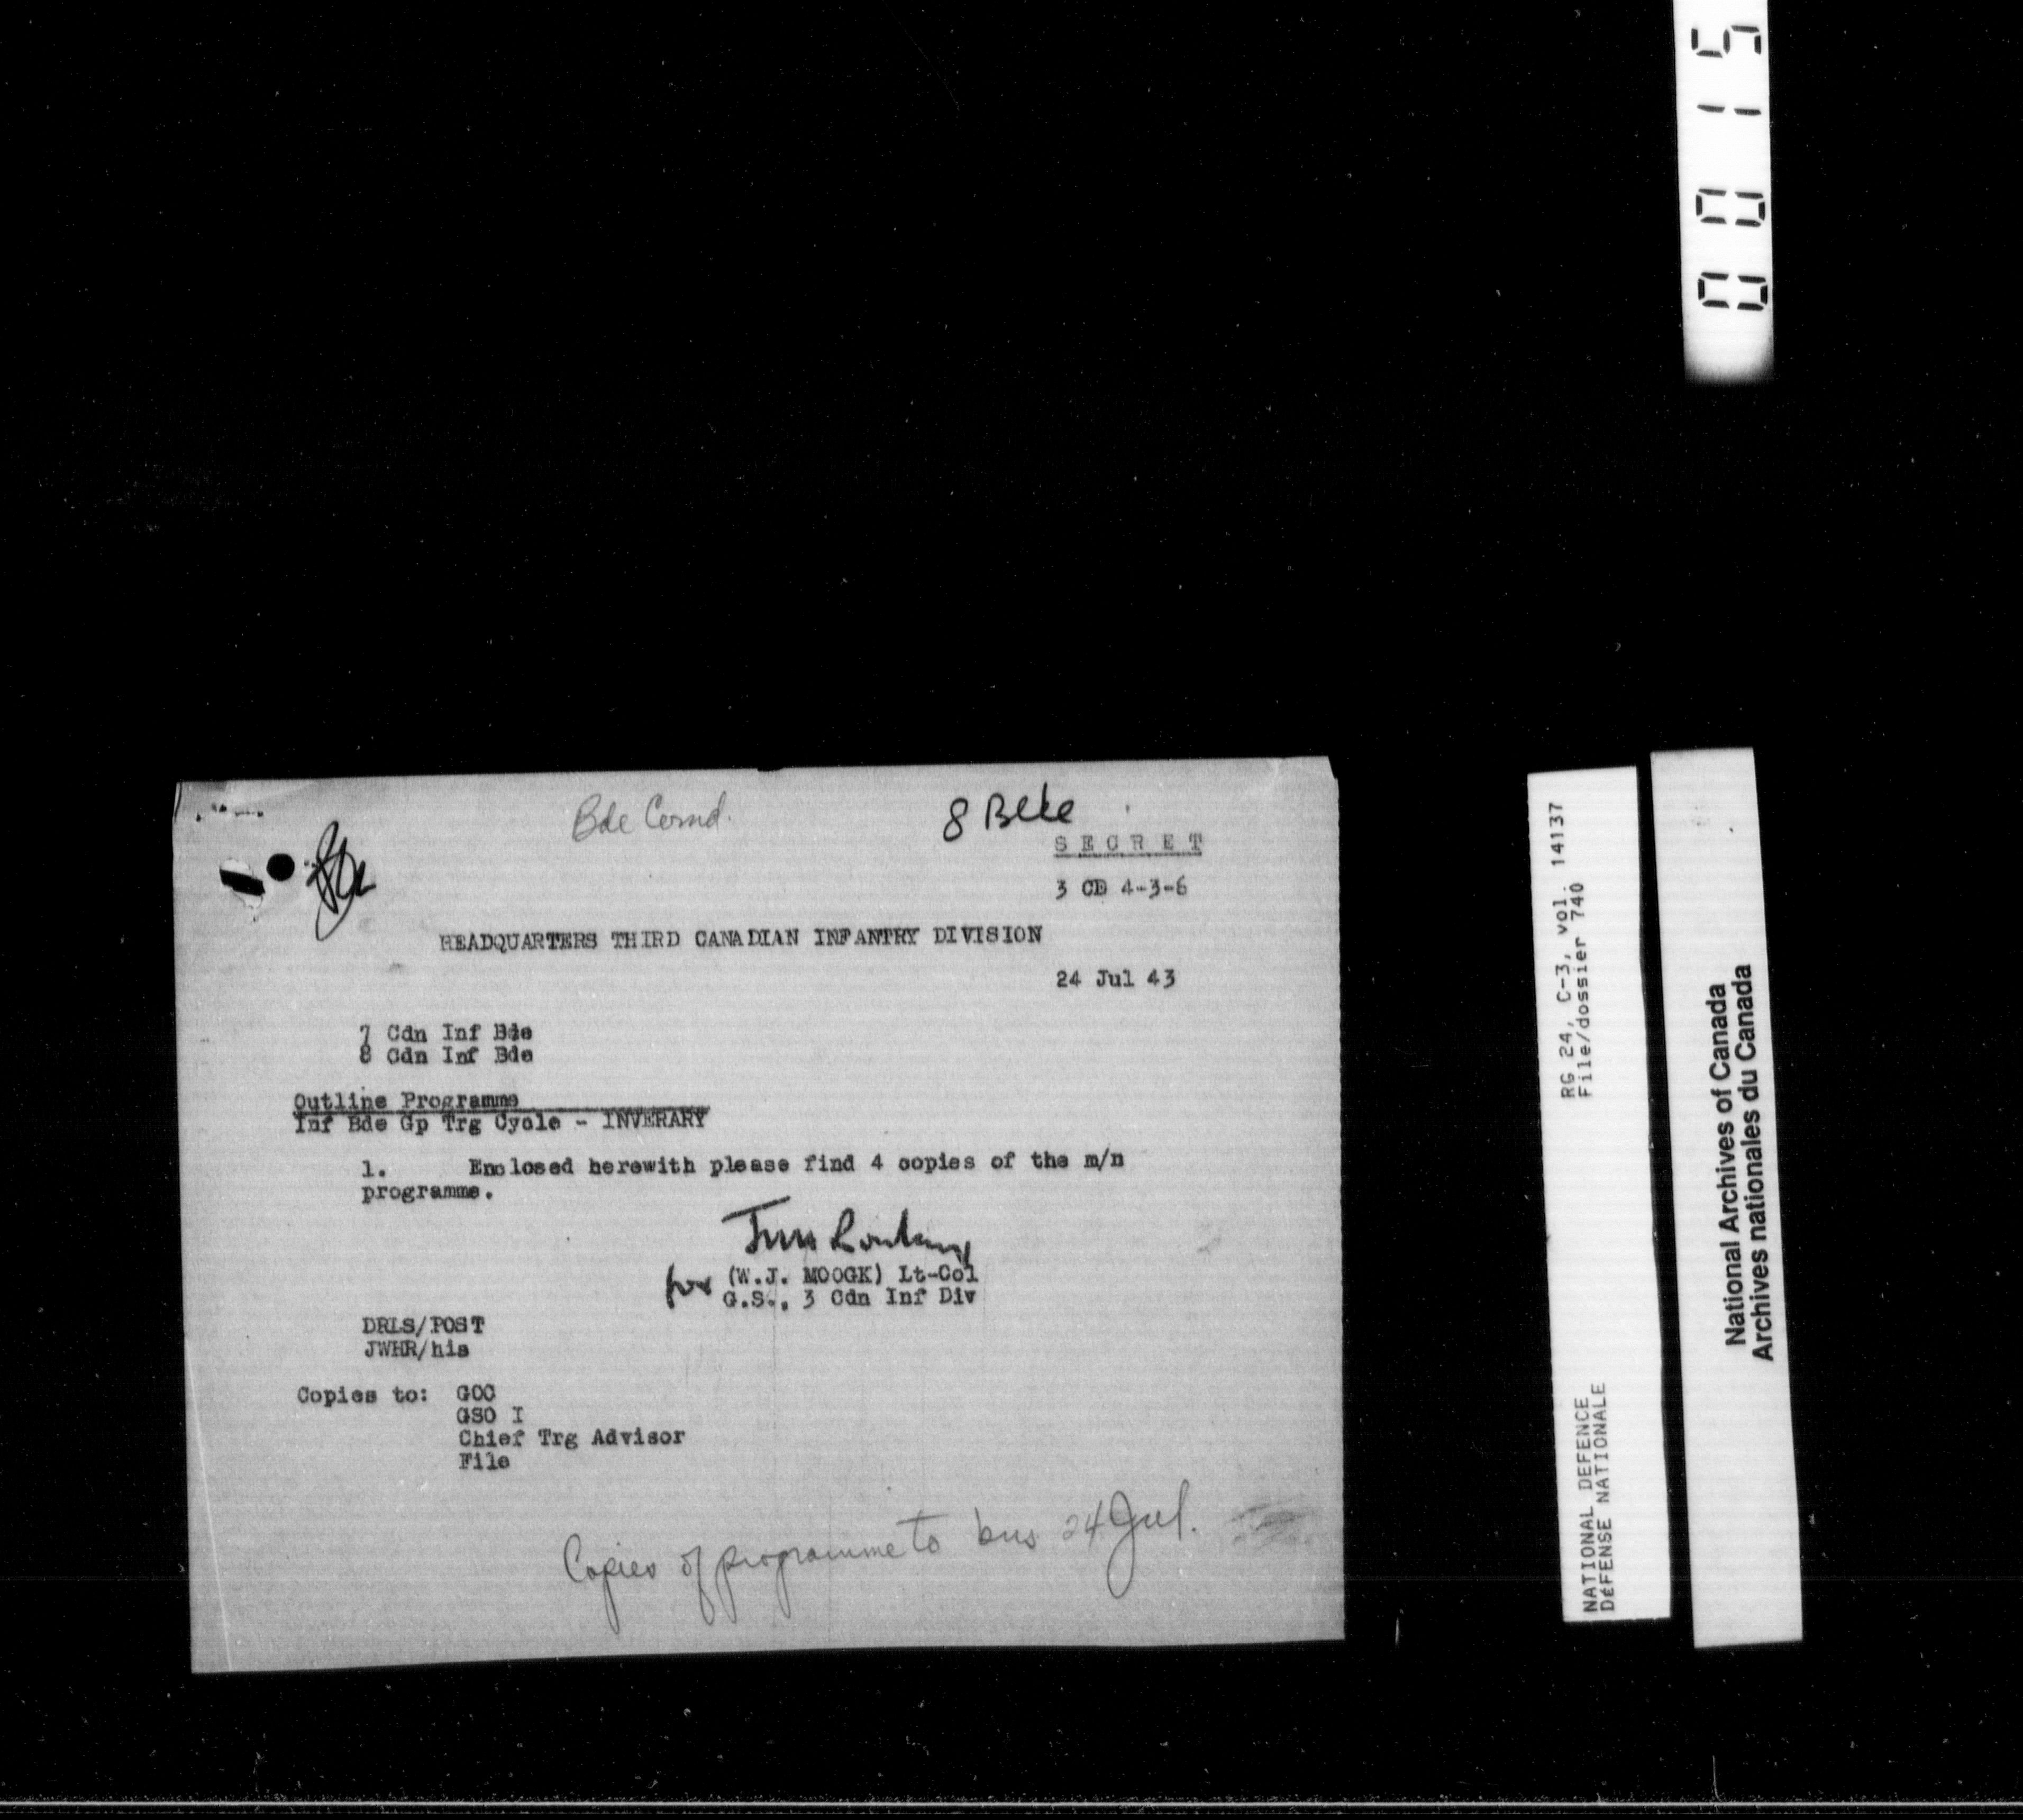 0015
Bde Comd.
8 Bde
SECRET
3 CD 4-3-6
HEADQUARTERS THIRD CANADIAN INFANTRY DIVISION
24 Jul 43
7 Cdn Inf Bde
8 Cdn Inf Bde
Outline Programme
Inf Bde Gp Trg Cycle - INVERARY
1. Enclosed herewith please find 4 copies of the m/n
programme.
for (W.J. MOOGK) Lt-Col
G.S., 3 Cdn Inf Div
DRLS/POST
JWHR/his
Copies to: GOC
GSO I
Chief Trg Advisor
File
Copies of programme to bns 24 Jul.
RG 24, C-3, vol. 14137
File/dossier 740
NATIONAL DEFENCE
DéFENSE NATIONALE
National Archives of Canada
Archives nationales du Canada